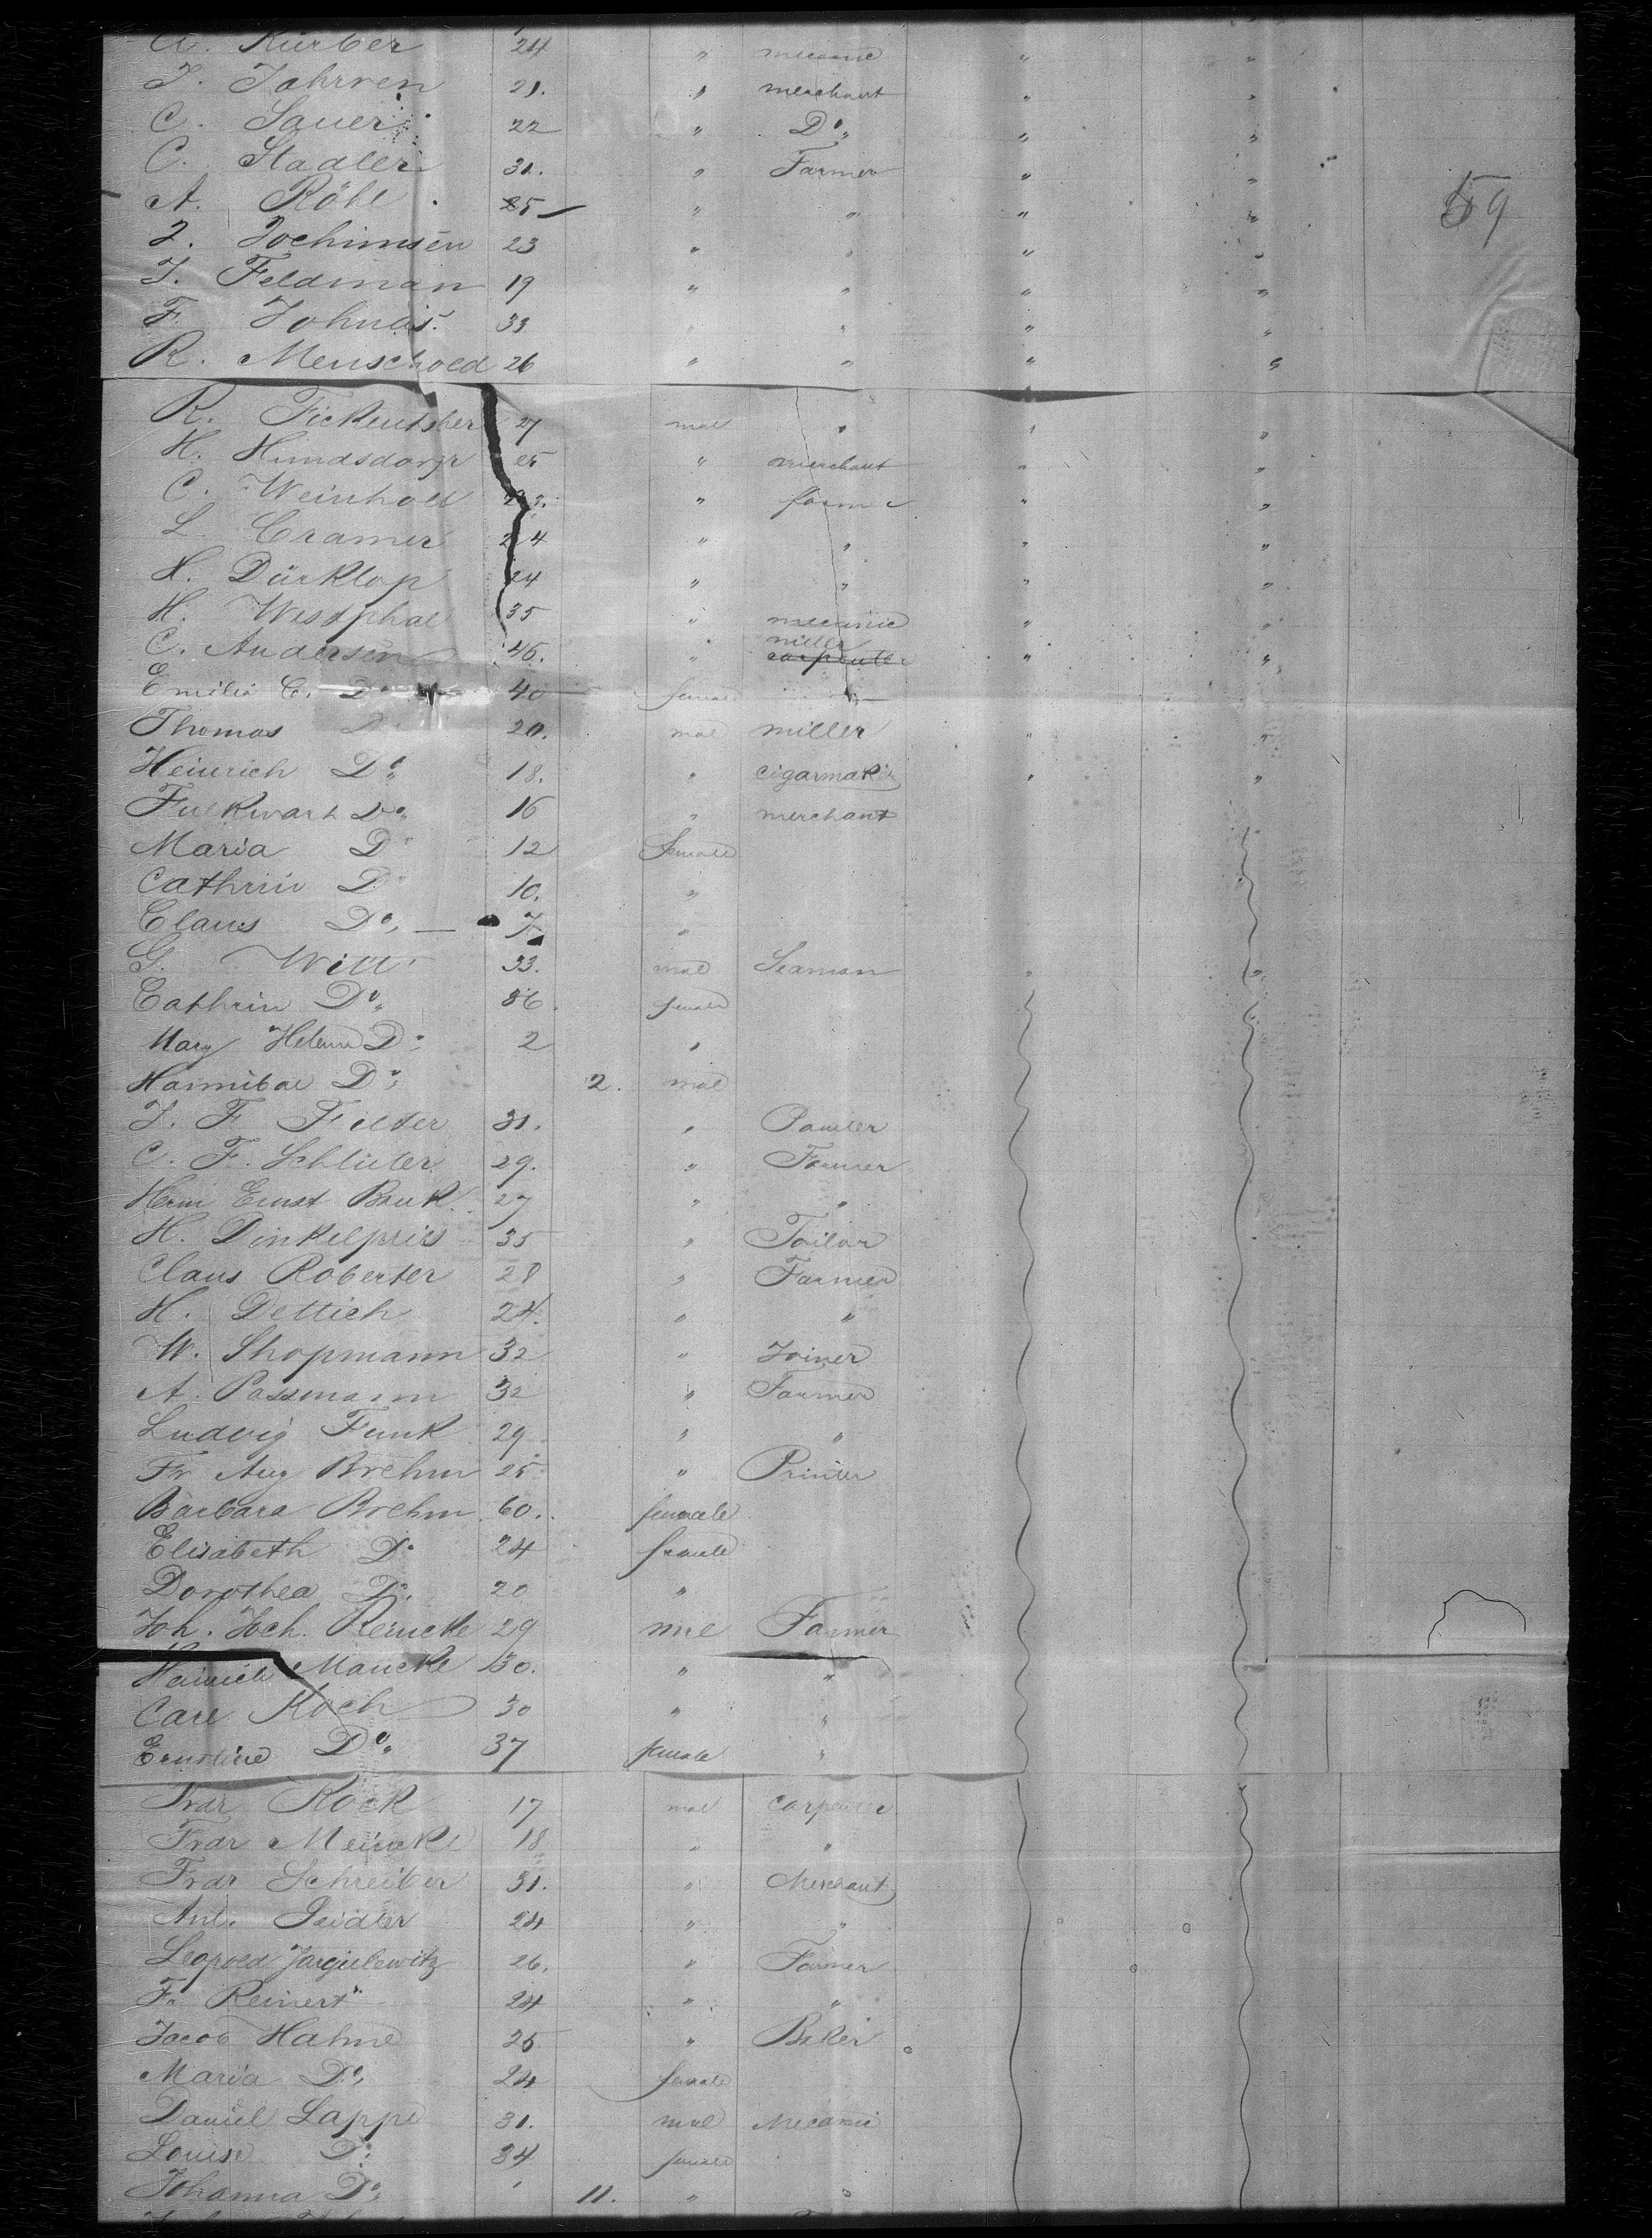 A. Kürber 24 " mecanic " "
J. Jahrren 21. " merchant " "
C. Sauer 22 " Do " "
C. Stadler 31. " Farmer " "
A. Röhl 25 " " " " 59
J. Jochimsen 23 " " " "
J. Feldman 19 " " " "
F. Johnas. 33 " " " "
R. Menschoed 26 " " " "
R. Fickentsher 27 mal " " "
H. Hundsdorfr 25 " merchant " "
C. Weinhold 23. " farmer " "
L. Cramer 24 " " " "
H. Dürklop 24 " " " "
H. Westphal 35 " mecanic " "
miller
C. Andersen 46. " carpenter " "
Emilie C. Do 40 female
Thomas Do 20. mal miller " "
Heinrich Do 18. " cigarmaker " "
Fulkwart Do 16 " merchant
Maria Do 12 female
Cathrin Do 10. "
Claus Do, 7 "
G. Witt 33. mal Seaman " "
Cathrin Do 36. female
Mary Helene Do 2 "
Hannibal Do 2. mal
J. F. Felter 31. "
C. F. Schluter 29. " Farmer
Ernst Bauk 27 " "
H. Dinkelpris 35 " Tailor
Claus Roberter 28 " Farmer
H. Dettich 24. " "
W. Shopmann 32 " Joiner
A. Possmann 32 " Farmer
Ludvig Funk 29 " "
Fr Aug Brehm 25 " Printer
Barbara Brehm 60. female
Elisabeth Do 24 female
Dorothea Do. 20 "
Joh. Joch. Reincke 29 male Farmer
Heinrich Mancke 30. " "
Carl Koch 30 " "
Ernstine Do 37 female "
Frdr Kock 17 mal carpenter
Frdr Meincke 18 " "
Frdr Schreiber 31. " Merchant
Ant. Seidler 24 " "
Leopold Jargulewitz 26. " Farmer
Fr. Reinert 24 " "
Jacob Hahne 25 " Baker
Maria Do, 24 female
Daniel Lappe 31. mal Mecanic
Louise Do 34 female
Johanna Do 11. "